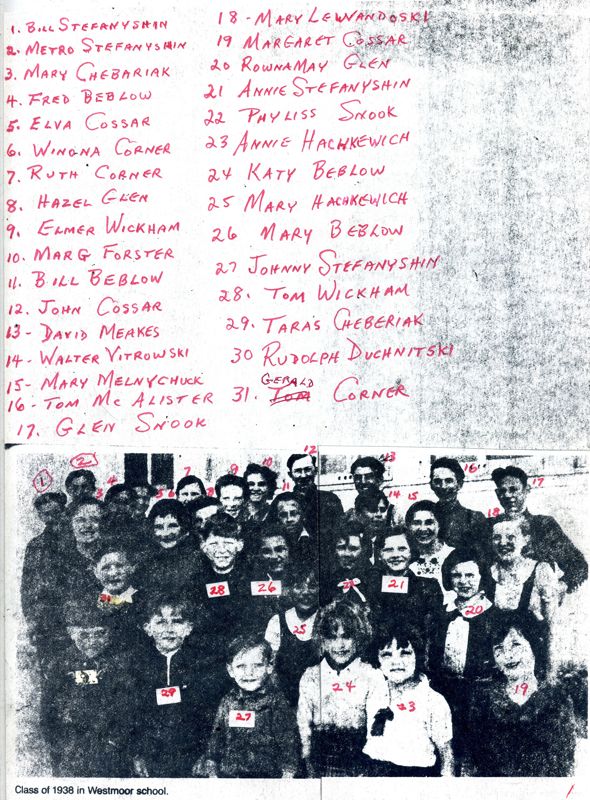 1. Bill Stefanyshin
2. Metro Stefanyshin
3 Mary Chebariak
4. Fred Beblow
5. Elva Cossar
6. Winona Corner
7. Ruth Corner
8. Hazel Glen
9. Elmer Wickham
10. Marg Forster
11. Bill Beblow
12. John Cossar
13- David Meakes
14- Walter Vitrowski
15- Mary Melnychuck
16- Tom McAlister
17. Glen Snook
18- Mary Lewandoski
19 Margaret Cossar
20 Rownamay Glen
21 Annie Stefanyshin
22 Phyliss Snook
23 Annie Hachkewich
24 Katy Beblow
25 Mary Hachkewich
26 Mary Beblow
27 Johnny Stefanyshin
28. Tom Wickham
29. Taras Cheberiak
30 Rudolph Duchnitski
Gerald
31. Tom Corner
1 2 3 4 5 6 7 8 9 10 11 12 13 14 15 16 17 18
31 28 26 22 21 20
25
29 27 24 23 19
Class of 1938 in Westmoor school.
1